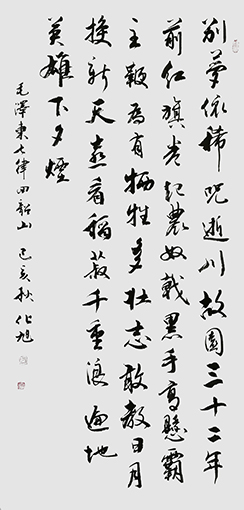 别夢依稀咒逝川故園三十二年
前红旗卷起農奴戟黑手高懸霸
主鞭為有牺牲多壯志敢教日月
換新天喜看稻菽千重浪遍地
英雄下夕煙
毛澤東七律回韶山 己亥秋化旭